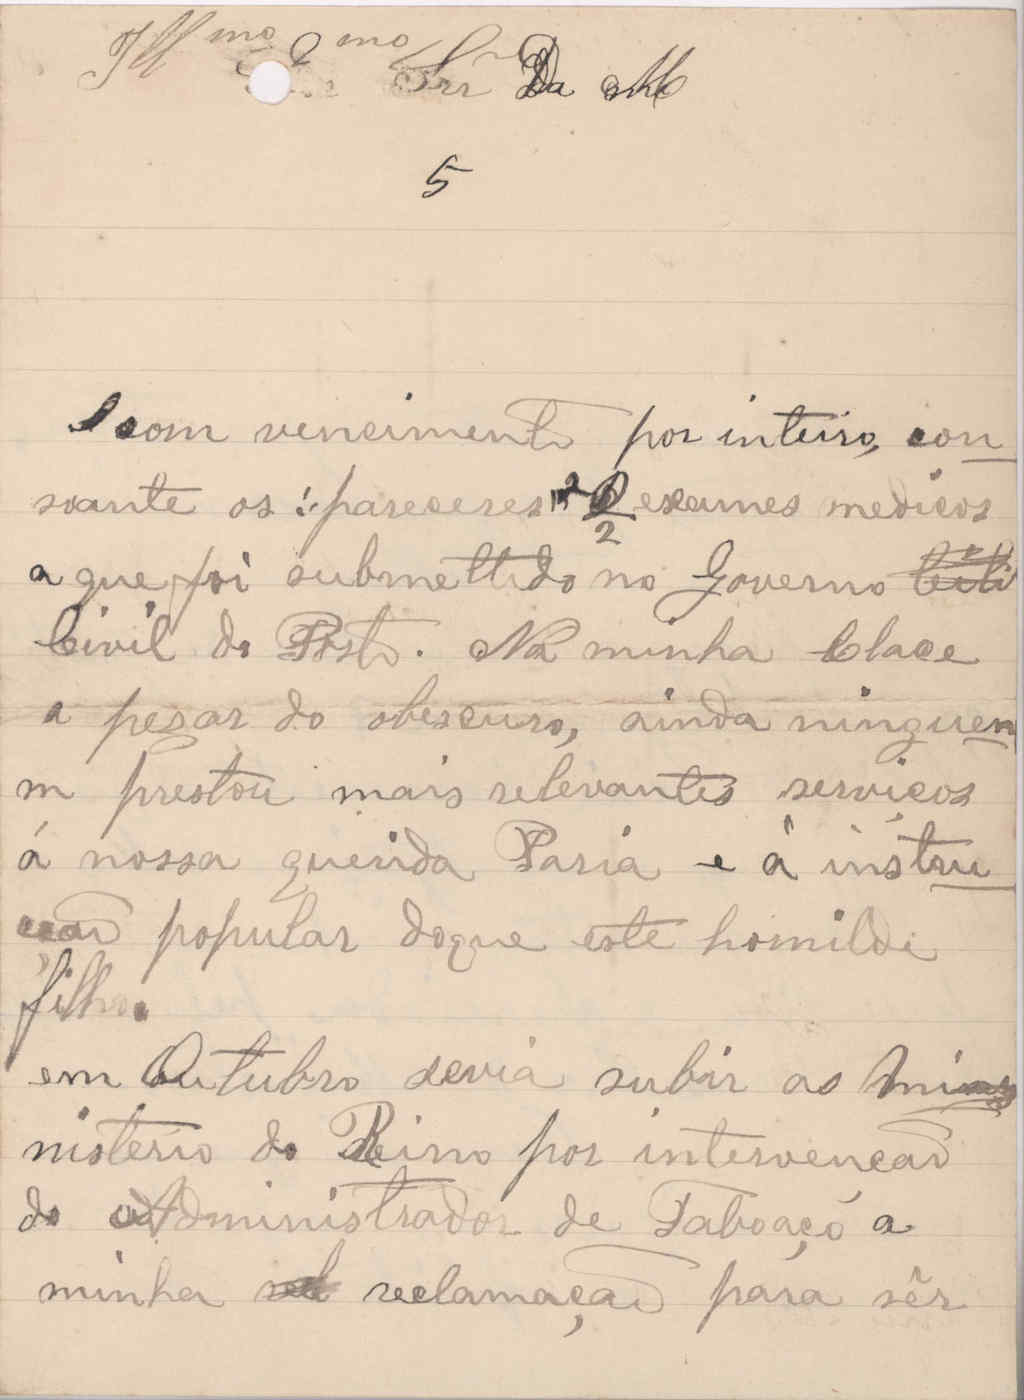 Ill mo Sr Da
5
com vencimento por inteiro, con
soante os pareceres 2 exames medicos
a que foi submettido no Governo
Civil do Porto. Na minha Clace
a pezar do obescuro, ainda ninguen
m prestou mais relevantes serviços
á nossa querida Paria e á instru
çaõ popular doque este homilde
filho.
em Outubro devia subir ao Mi
nisterio do Reino por intervencaõ
do Administrador de Taboaço a
minha reclamaçaõ para sêr